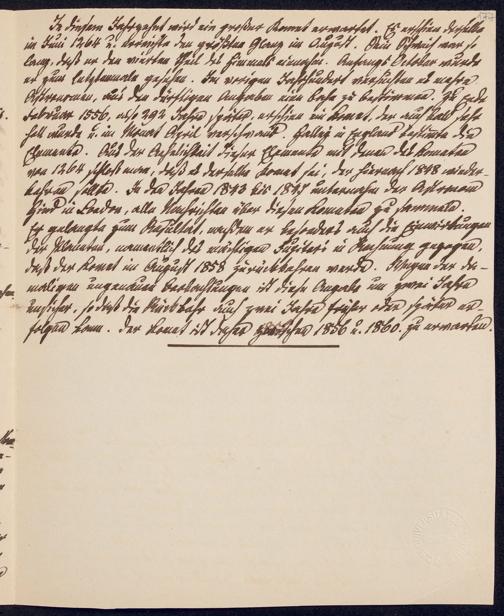 In diesem Jahrzehnt wird ein großer Komet erwartet. Es erschien derselbe
im Juli 1264 u. erreichte den größten Glanz im August. Sein Schweif war so
lang, daß er den vierten Theil des Himmels einnahm. Anfangs October wurde
er zum letztenmale gesehen. Im vorigen Jahrhundert versuchten es mehre
Astronomen, aus den dürftigen Angaben eine Bahn zu bestimmen. Zu Ende
Februar 1556, also 292 Jahre später, erschien ein Komet, der auch sehr
hell wurde u. im Monat April verschwand. Halley in England bestimmte die
Elemente. Aus der Aehnlichkeit dieser Elemente mit denen des Kometen
von 1264 schloß man, daß es derselbe Komet sei, der hiernach 1848 wieder-
kehren sollte. In den Jahren 1843 bis 1847 unternahm der Astronom
Hind in London, alle Nachrichten über diesen Kometen zu sammeln.
Er gelangte zum Resultat, nachdem er besonders auch die Einwirkungen
der Planeten, namentlich des mächtigen Jupiters in Rechnung gezogen,
daß der Komet im August 1858 zurückkehren werde. Wegen der da-
maligen ungenauen Beobachtungen ist diese Angabe um zwei Jahre
unsicher, so daß die Rückkehr auch zwei Jahre früher oder später er-
folgen kann. Der Komet ist daher zwischen 1856 u. 1860 zu erwarten.